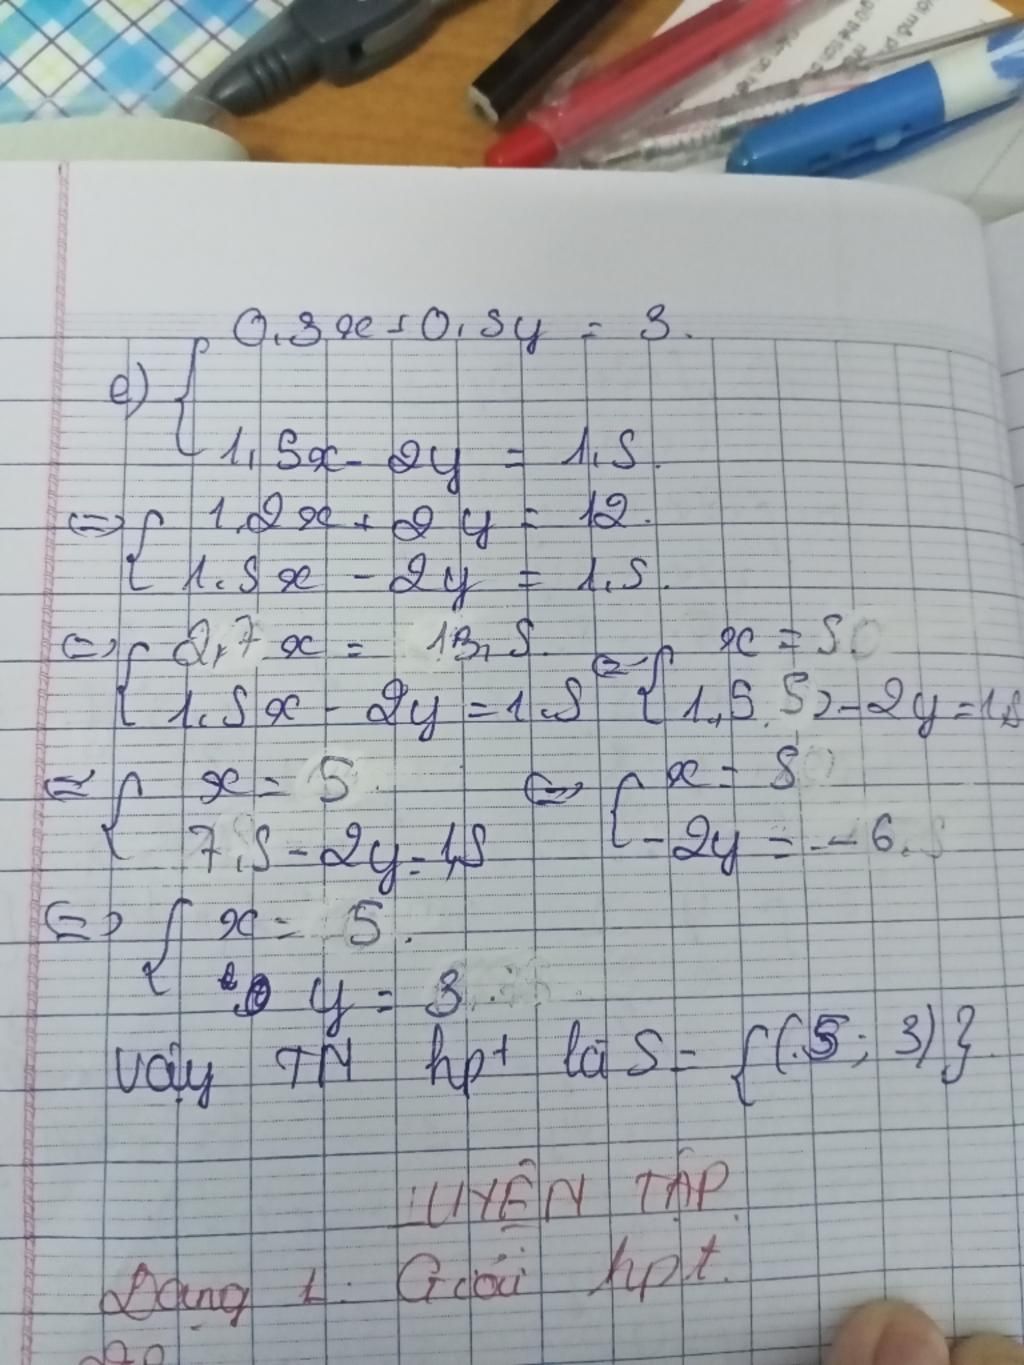 0,3x+0,5y = 3.
e) {
1,5x - 2y = 1,5.
⇔ { 1,2x + 2y = 12.
1,5x - 2y = 1,5.
⇔ { 2,7x = 13,5. ⇔ { x = 5
1,5x - 2y = 1,5 1,5.5 - 2y = 1,5
⇔ { x = 5 ⇔ { x = 5
7,5 - 2y = 1,5 -2y = -6
⇔ { x = 5.
y = 3
vậy TN hpt là S = {(5; 3)}.
LUYỆN TẬP
Dạng 1: Giải hpt.